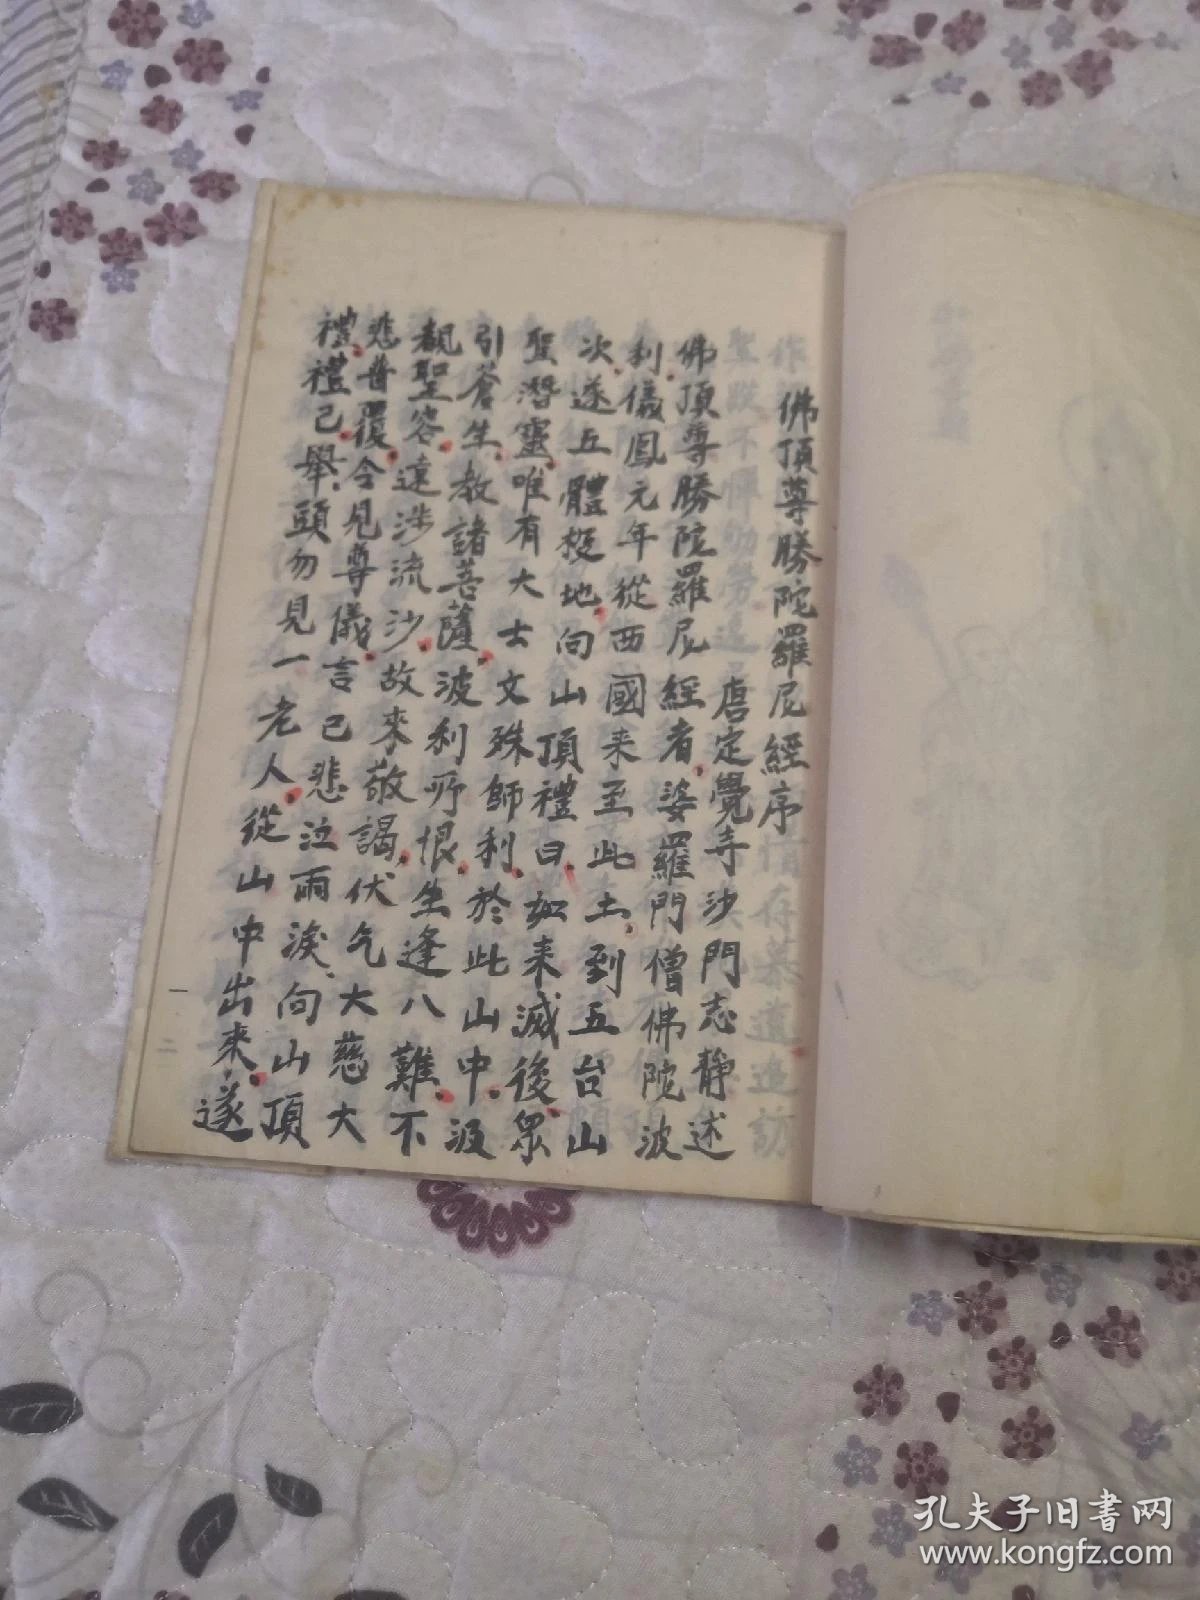 佛頂尊勝陀羅尼經序
唐定覺寺沙門志靜述
佛頂尊勝陀羅尼經者婆羅門僧佛陀波
利儀鳳元年從西國来至此土到五台山
次遂五體投地向山頂禮曰如来滅後眾
聖潛靈唯有大士文殊師利於此山中汲
引蒼生教諸菩薩波利所恨生逢八難不
覩聖容遠涉流沙故來敬謁伏气大慈大
悲普覆令見尊儀言已悲泣雨淚向山頂
禮禮已舉頭勿見一老人從山中出來遂
一
孔夫子旧书网
www.kongfz.com